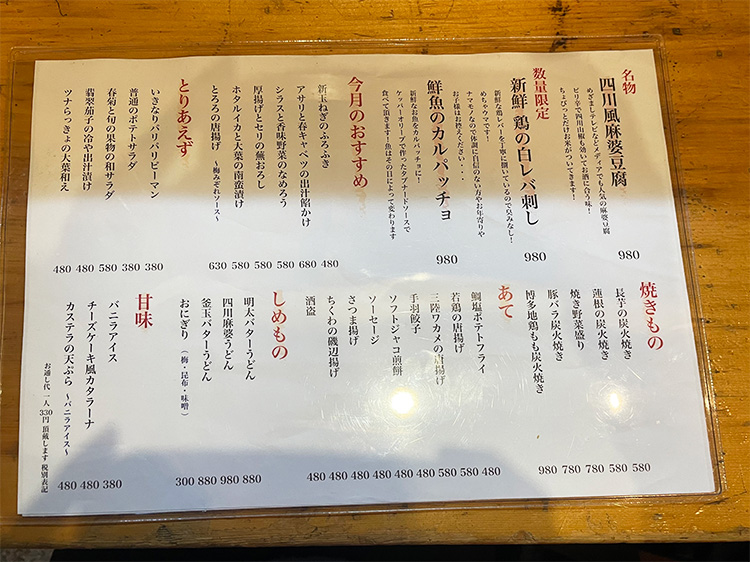 名物
四川風麻婆豆腐
めざましテレビなどメディアでも人気の麻婆豆腐
ピリ辛で四川山椒も効いてお酒に合う味！
ちょびっとだけお米がついてきます！
980
数量限定
新鮮 鶏の白レバ刺し
新鮮な鶏レバーを丁寧に開いているので臭みなし！
めちゃウマです！
ナマモノなので体調に自信のない方やお年寄りや
お子様はお控えください・・・・
980
鮮魚のカルパッチョ
新鮮なお魚をカルパッチョに！
ケッパーオリーブで作ったタプナードソースで
食べて頂きます！魚はその日によって変わります
980
今月のおすすめ
新玉ねぎのふろふき 480
アサリと春キャベツの出汁餡かけ 680
シラスと香味野菜のなめろう 580
厚揚げとセリの蕪おろし 580
ホタルイカと大葉の南蛮漬け 580
とろろの唐揚げ ～梅みぞれソース～ 630
とりあえず
いきなりパリパリピーマン 380
普通のポテトサラダ 380
春菊と旬の果物の和サラダ 580
翡翠茄子の冷や出汁漬け 480
ツナらっきょの大葉和え 480
焼きもの
長芋の炭火焼き 580
蓮根の炭火焼き 580
焼き野菜盛り 780
豚バラ炭火焼き 780
博多地鶏もも炭火焼き 980
あて
鯛塩ポテトフライ 480
若鶏の唐揚げ 580
三陸ワカメの唐揚げ 580
ソフトジャコ煎餅 480
手羽餃子 480
ソーセージ 480
さつま揚げ 480
ちくわの磯辺揚げ 480
酒盗 480
しめもの
明太バターうどん 880
四川麻婆うどん 980
釜玉バターうどん 880
おにぎり （梅・昆布・味噌） 300
甘味
バニラアイス 380
チーズケーキ風カタラーナ 480
カステラの天ぷら ～バニラアイス～ 480
お通し代 一人 330円 頂戴します 税別表記